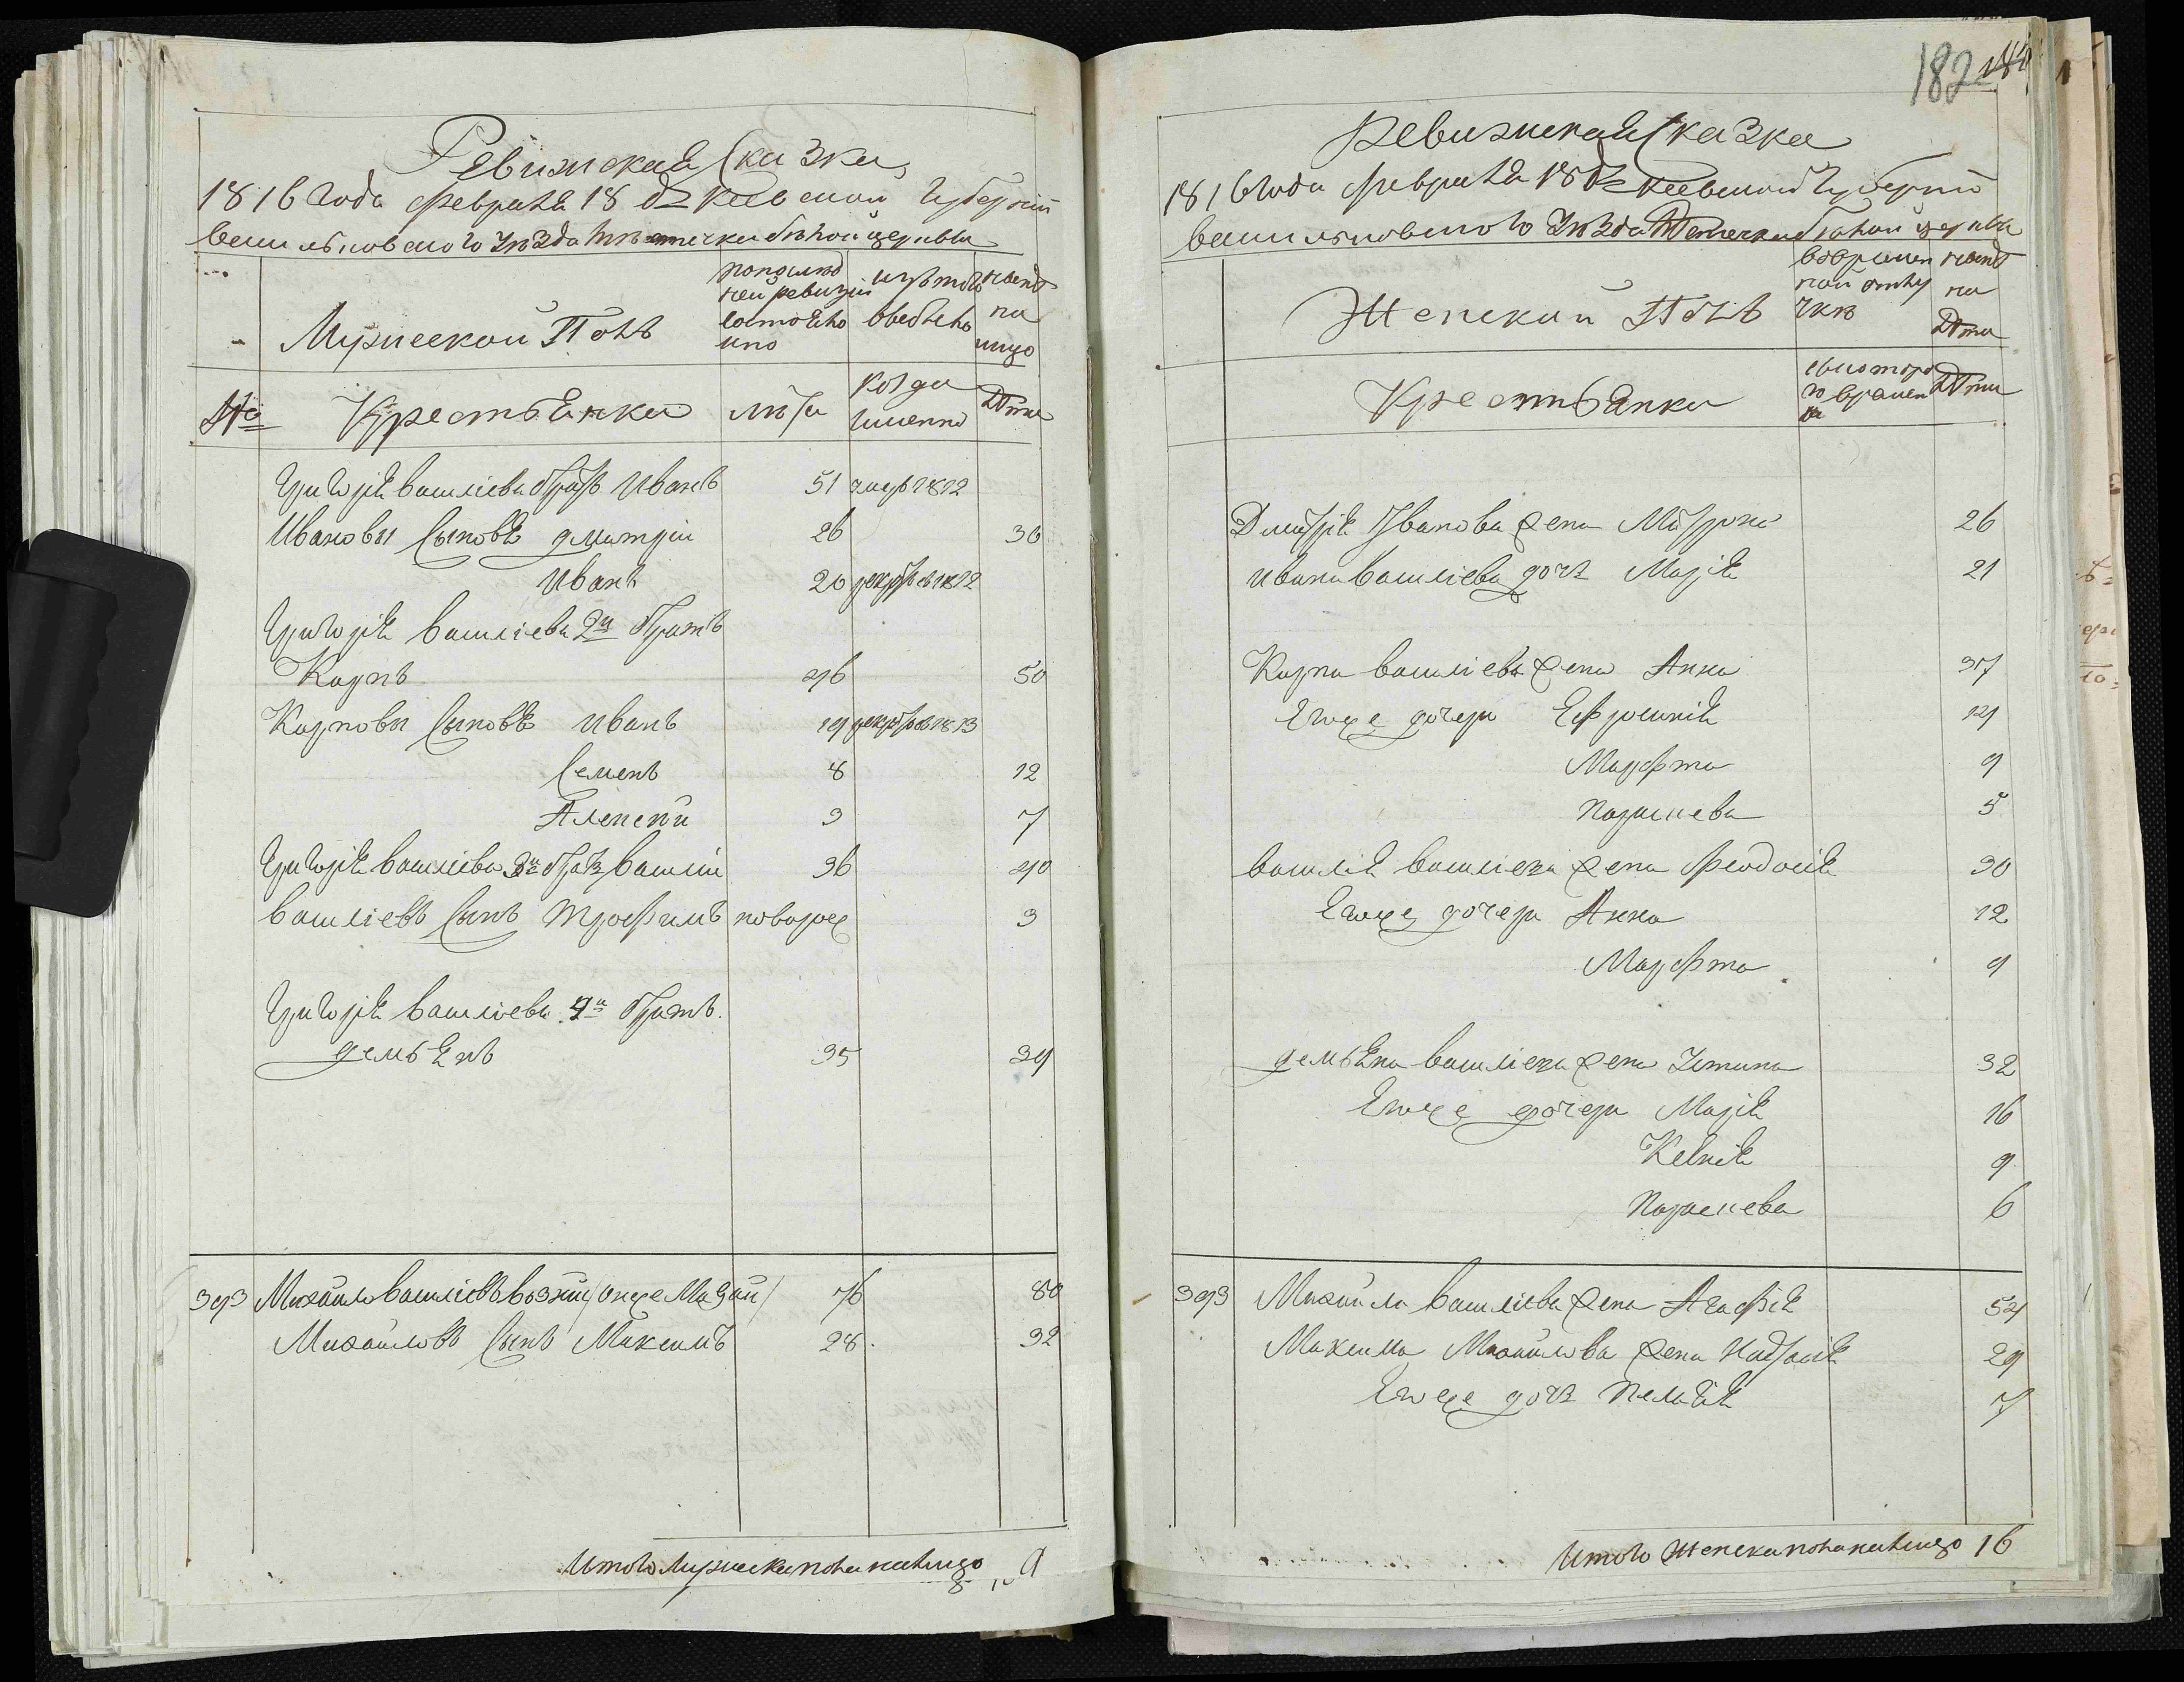 Ревижская Сказка
1816 Года февраля 18 д Киевской Губернии
васильковского уѣзда местечка бѣлой церквы
Мужеской Полъ
попослѣд
ней ревизіи
состояло
ино
изътого
выбыло
нынѣ
на
лицо
№
Крестьянки
лѣта
когда
именно
Лѣта
Григорія василіева братъ Иванъ 51 умеръ 1812
Ивановы Сыновья дмитрій 26 30
Иванъ 20 декабря 1812
Григорія василіева 2й братъ
Карпъ 46 50
Карповы Сыновья иванъ 19 декабря 1813
Семенъ 8 12
Алексѣй 3 7
Григорія василіева 3й братъ василій 36 40
василіевъ Сынъ Трофимъ новорож 3
Григорія василіева 4й братъ
демьянъ 35 39
393 Михайло василіевъ возній /онже Мазай/ 76 80
Михайловъ Сынъ Максимъ 28 32
Итого Мужеска пола налицо 9
182
Ревизская Сказка
1816 Года февраля 18 д Киевской Губерніи
васильковского уѣзда Местечка бѣлой церквы
Женской Полъ
вовремен
ной отлу
чкѣ
нынѣ
на
Лѣта
Крестьянки
скотораго
времен
Лѣта
Дмитрія Иванова жена Мотрона 26
ивана василіева дочь Марія 21
Карпа василіева жена Анна 37
Егоже дочери Ефросинія 14
Марфта 9
Параскева 5
василія василіева жена Феодосія 30
Егоже дочери Анна 12
Марфта 9
демьяна василіева жена Устина 32
Егоже дочери Марія 16
Ксенія 9
Параскева 6
393 Михайла василіева жена Агафія 54
Максима Михайлова жена 29
Егоже дочь Пелагія 7
Итого Женска пола налицо 16